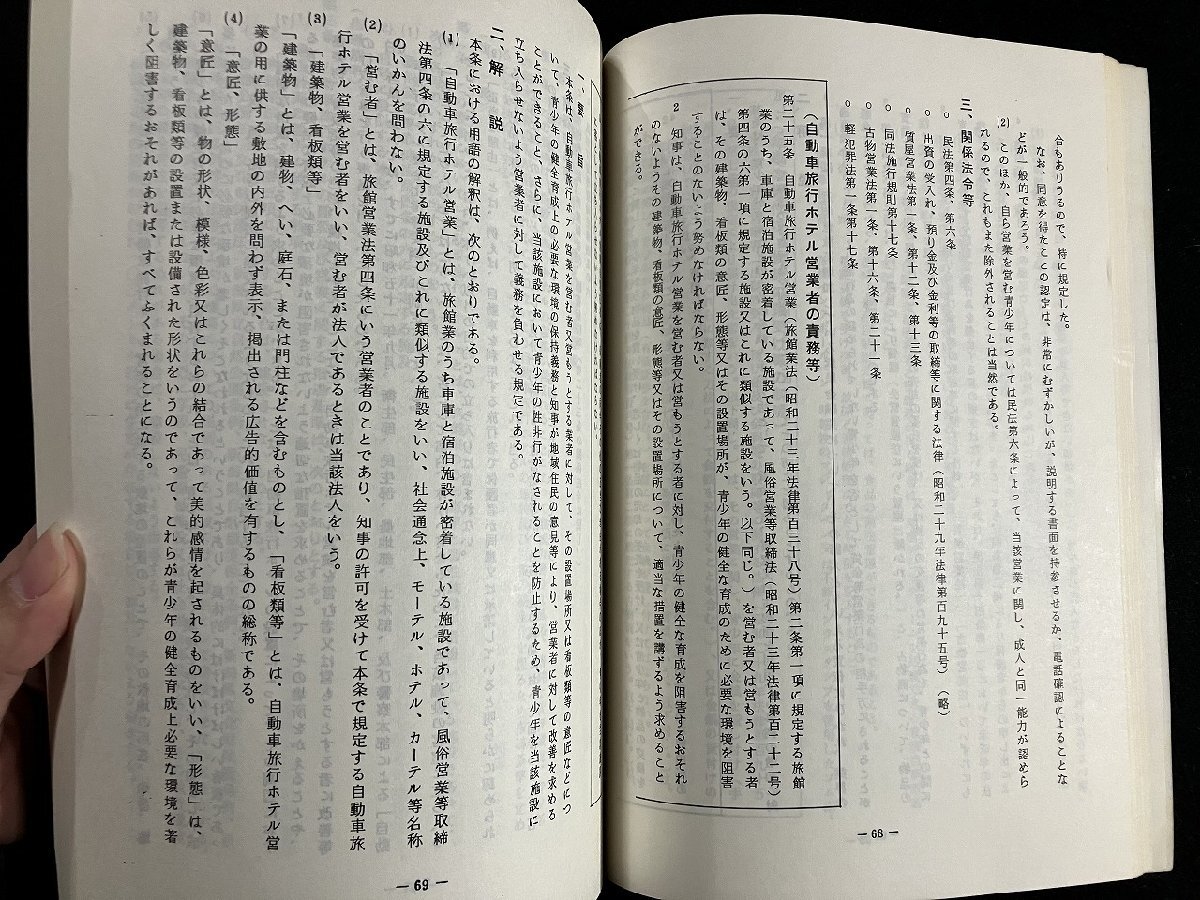 合もありうるので、特に規定した。
なお、同意を得たことの認定は、非常にむずかしいが、説明する書面を持参させるか、電話確認によることな
どが一般的であろう。
(2) このほか、自ら営業を営む青少年については民法第六条によって、当該営業に関し、成人と同一能力が認めら
れるので、これもまた除外されることは当然である。
三、関係法令等
○ 民法第四条、第六条
○ 出資の受入れ、預り金及び金利等の取締等に関する法律（昭和二十九年法律第百九十五号）（略）
○ 質屋営業法第一条、第十二条、第十三条
○ 同法施行規則第十七条
○ 古物営業法第一条、第十六条、第二十一条
○ 軽犯罪法第一条第十七条
（自動車旅行ホテル営業者の責務等）
第二十五条 自動車旅行ホテル営業（旅館業法（昭和二十三年法律第百三十八号）第二条第一項に規定する旅館
業のうち、車庫と宿泊施設が密着している施設であって、風俗営業等取締法（昭和二十三年法律第百二十二号）
第四条の六第一項に規定する施設又はこれに類似する施設をいう。以下同じ。）を営む者又は営もうとする者
は、その建築物、看板類の意匠、形態等又はその設置場所が、青少年の健全な育成のために必要な環境を阻害
することのないよう努めなければならない。
2 知事は、自動車旅行ホテル営業を営む者又は営もうとする者に対し、青少年の健全な育成を阻害するおそれ
のないようその建築物、看板類の意匠、形態等又はその設置場所について、適当な措置を講ずるよう求めること
ができる。
― 68 ―
一、要 旨
本条は、自動車旅行ホテル営業を営む者又営もうとする業者に対して、その設置場所又は看板類等の意匠などにつ
いて、青少年の健全育成上の必要な環境の保持義務と知事が地域住民の意見等により、営業者に対して改善を求める
ことができること、さらに、当該施設において青少年の性非行がなされることを防止するため、青少年を当該施設に
立ち入らせないよう営業者に対して義務を負わせる規定である。
二、解 説
本条における用語の解釈は、次のとおりである。
(1) 「自動車旅行ホテル営業」とは、旅館業のうち車庫と宿泊施設が密着している施設であって、風俗営業等取締
法第四条の六に規定する施設及びこれに類似する施設をいい、社会通念上、モーテル、ホテル、カーテル等名称
のいかんを問わない。
(2) 「営む者」とは、旅館営業法第四条にいう営業者のことであり、知事の許可を受けて本条で規定する自動車旅
行ホテル営業を営む者をいい、営む者が法人であるときは当該法人をいう。
(3) 「建築物、看板類等」
「建築物」とは、建物、へい、庭石、または門柱などを含むものとし、「看板類等」とは、自動車旅行ホテル営
業の用に供する敷地の内外を問わず表示、掲出される広告的価値を有するものの総称である。
(4) 「意匠、形態」
「意匠」とは、物の形状、模様、色彩又はこれらの結合であって美的感情を起されるものをいい、「形態」は、
建築物、看板類等の設置または設備された形状をいうのであって、これらが青少年の健全育成上必要な環境を著
しく阻害するおそれがあれば、すべてふくまれることになる。
― 69 ―